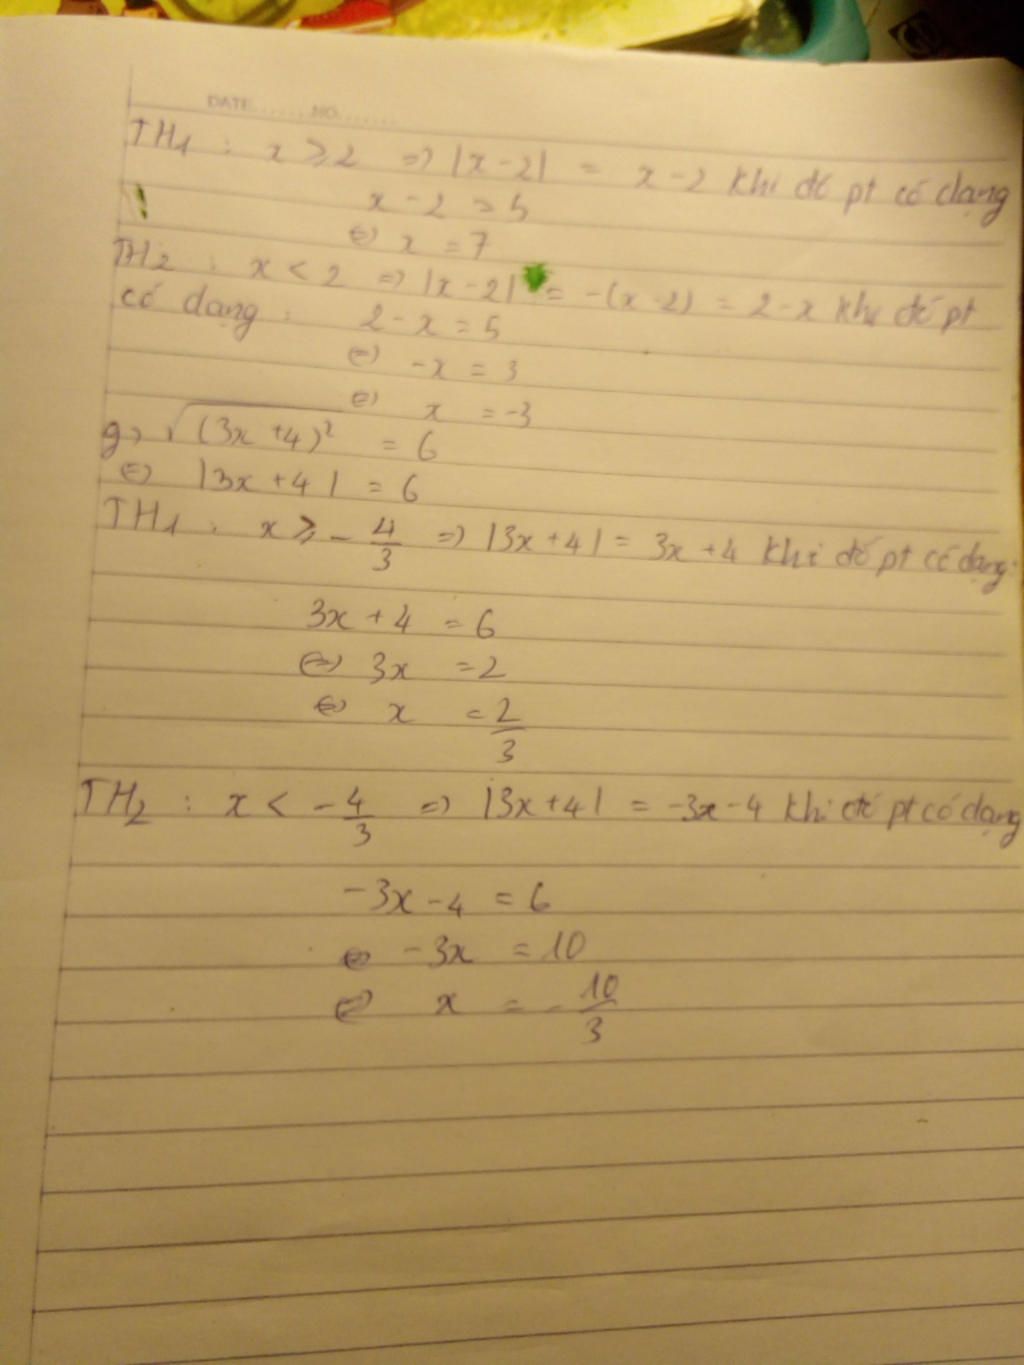 DATE.......NO.......
TH1 : x ⩾ 2 => |x - 2| = x - 2 khi đó pt có dạng
x - 2 = 5
<=> x = 7
TH2 : x < 2 => |x - 2| = -(x - 2) = 2 - x khi đó pt
có dạng : 2 - x = 5
<=> -x = 3
<=> x = -3
g, √(3x + 4)² = 6
<=> |3x + 4| = 6
TH1 : x ⩾ - 4/3 => |3x + 4| = 3x + 4 khi đó pt có dạng:
3x + 4 = 6
<=> 3x = 2
<=> x = 2/3
TH2 : x < - 4/3 => |3x + 4| = -3x - 4 khi đó pt có dạng
-3x - 4 = 6
<=> -3x = 10
<=> x = - 10/3